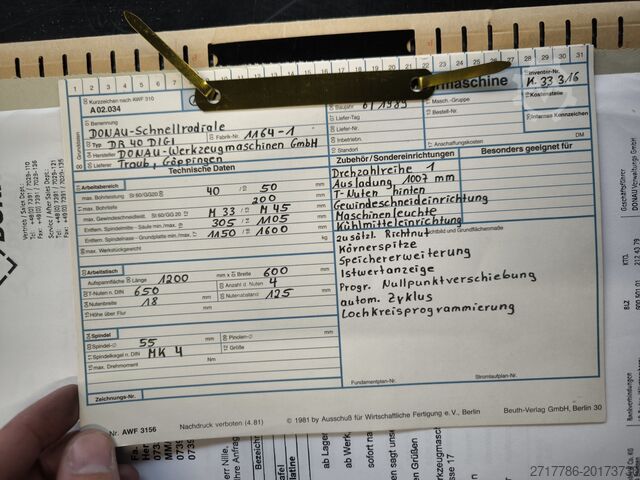 1 2 3 4 5 6 7 10 11 12 13 14 15 16 17 18 19 20 21 22 27 28 29 30 31
Kurzzeichen nach AWF 310
A 02.034
maschine
Inventar-Nr.
M. 33 316
Baujahr 6/1989
Masch.-Gruppe
Kostenstelle
Grunddaten
Benennung
DONAU-Schnellradiale
Lief.-Tag
Bestell-Nr.
Internes Kennzeichen
Typ DR 40 DIGI
Fabrik-Nr. 1164-1
Liefer-Nr.
Hersteller DONAU-Werkzeugmaschinen GmbH
Inbetriebn.
Lieferer Traub, Göppingen
Standort
Anschaffungskosten
Technische Daten
Zubehör/Sondereinrichtungen
Besonders geeignet für
Arbeitsbereich
max. Bohrleistung St 60/GG20 40 / 50 mm
max. Bohrtiefe 200 mm
max. Gewindeschneidleist. St 60/GG 20 M 33 / M 45 mm
Entfern. Spindelmitte - Säule min./max. 305 / 1105 mm
Entfern. Spindelnase - Grundplatte min./max. 1150 / 1600 mm
max. Werkstückgewicht kg
Drehzahlreihe 1
Ausladung 1007 mm
T-Nuten hinten
Gewindeschneideinrichtung
Maschinenleuchte
Kühlmitteleinrichtung
zusätzl. Richtnut
Lichtbild und Grundflächenmaße
Körnerspitze
Speichererweiterung
Istwertanzeige
Progr. Nullpunktverschiebung
autom. Zyklus
Lochkreisprogrammierung
Arbeitstisch
Aufspannfläche Länge 1200 mm x Breite 600 mm
T-Nuten n. DIN 650
Anzahl d. Nuten 4
Nutenbreite 18 mm
Nutenabstand 125 mm
Höhe über Flur mm
Spindel
Spindel-∅ 55 mm
Pinolen-∅ mm
Spindelkegel n. DIN MK 4
Größe
max. Drehmoment Nm
Zeichnungs-Nr.
Fundamentplan-Nr.
Stromlaufplan-Nr.
Nr. AWF 3156
Nachdruck verboten (4.81)
© 1981 by Ausschuß für Wirtschaftliche Fertigung e.V., Berlin
Beuth-Verlag GmbH, Berlin 30
2717786-20173733